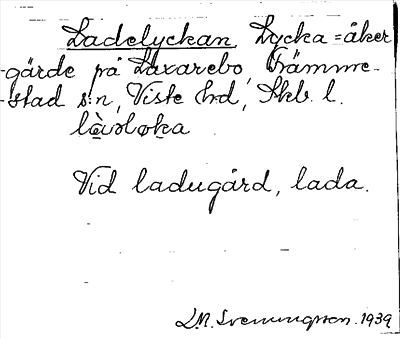 Ladelyckan, Lycka = åker
-gärde på Laxarebo, Främme-
-stad s:n, Viste hd, Skb. l.
Vid ladugård, lada.
L.M. Svenungsson. 1939